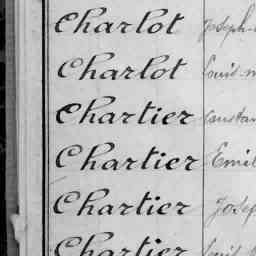 Charlot Joseph
Charlot Louis
Chartier Constan
Chartier Emil
Chartier Josep
Chartier Louis